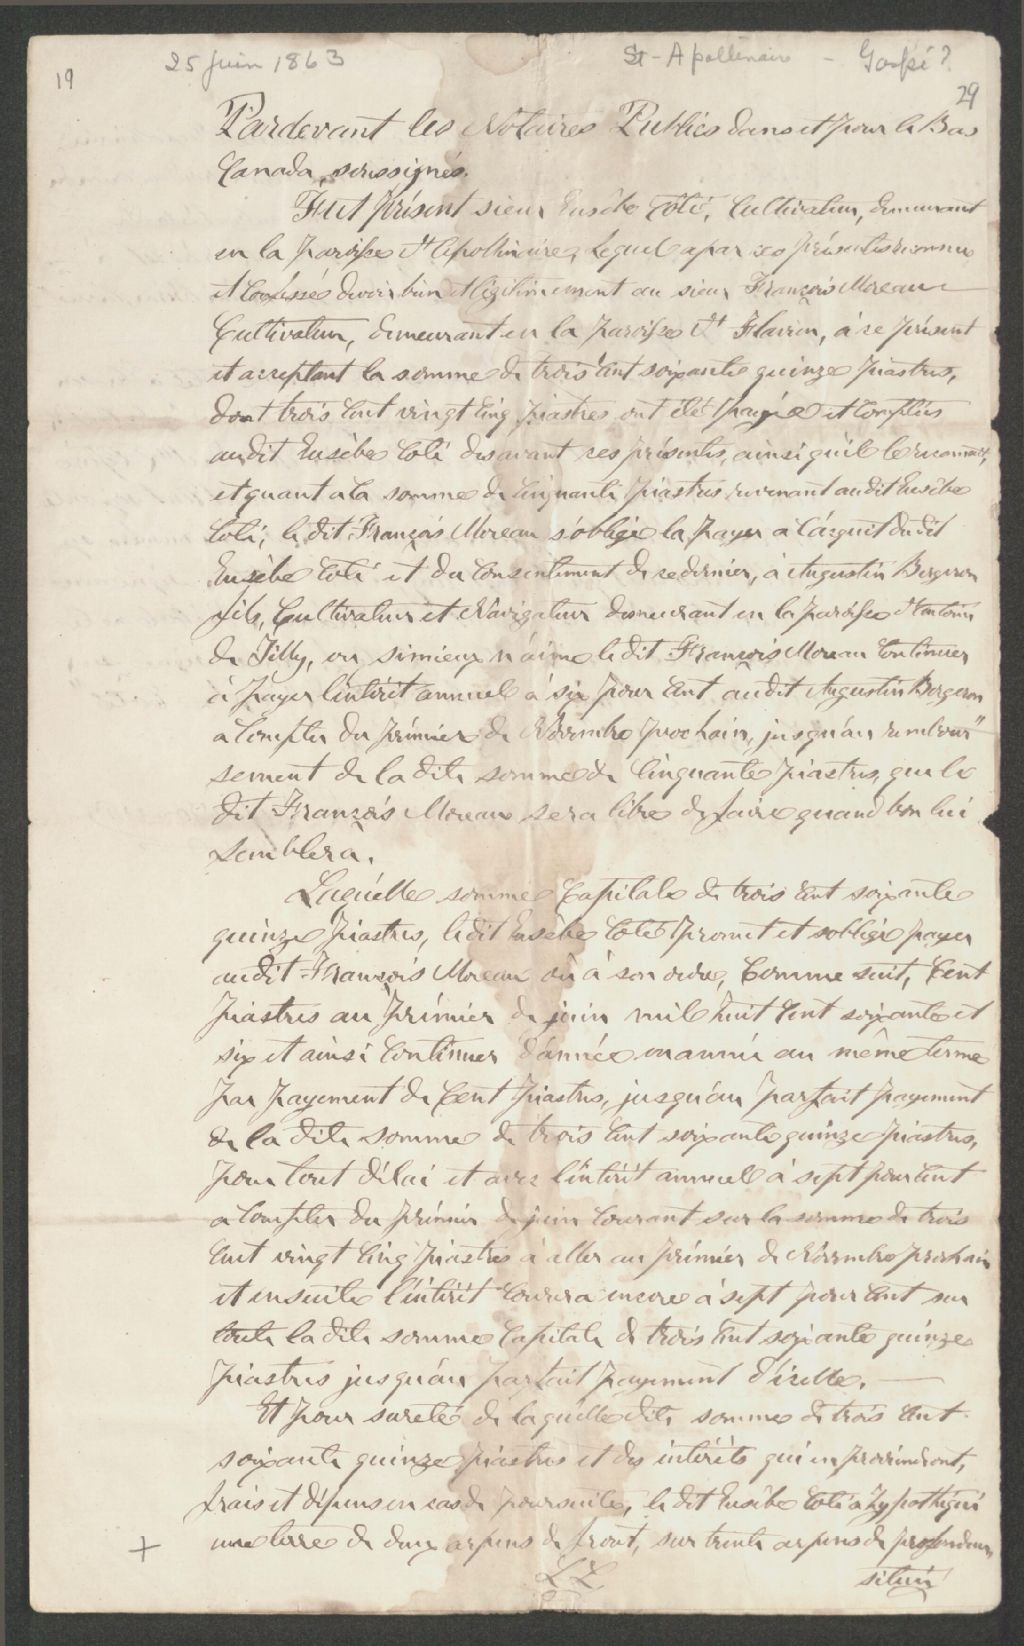 19
25 Juin 1863
St-Apollinaire - Gaspé?
29
Pardevant les Notaires Publics dans et pour le Bas
Canada, soussignés.
Fut présent sieur Eusèbe Coté, Cultivateur, demeurant
en la paroisse St Apollinaire, Lequel a par ces présentes reconnu
et confessé devoir bien et légitimement au sieur François Moreau
Cultivateur, demeurant en la paroisse St Flavien, à ce présent
et acceptant la somme de trois cent soixante quinze piastres,
dont trois cent vingt cinq piastres ont été payé et comptés
audit Eusèbe Coté desavant ces présentes, ainsi qu'il le reconnait,
et quant a la somme de cinquante piastres revenant audit Eusèbe
Coté, le dit François Moreau s'oblige la payer a l'acquit dudit
Eusèbe Coté et du consentiment de ce dernier, à Augustin Bergeron
fils, Cultivateur et Navigateur demeurant en la paroisse St Antoine
de Tilly, ou si mieux n'aime le dit François Moreau continuer
à payer l'intérêt annuel à six pour cent audit Augustin Bergeron
a compter du prémier de Novembre prochain, jusqu'au rembour"
sement de la dite somme de cinquante piastres, que le
dit François Moreau sera libre de faire quand bon lui
semblera.
Laquelle somme Capitale de trois cent soixante
quinze piastres, ledit Eusèbe Coté promet et s'oblige payer
audit François Moreau ou à son ordre, Comme suit, Cent
piastres au prémier de juin mil huit cent soixante et
six et ainsi continuer d'année en année au même terme
par payement de Cent piastres, jusqu'au parfait payement
de la dite somme de trois cent soixante quinze piastres,
pour tout délai et avec l'intérêt annuel à sept pour cent
a compter du prémier de juin courant sur la somme de trois
cent vingt cinq piastres à aller au prémier de Novembre prochain
et ensuite l'intérêt courra encore à sept pour cent sur
toute la dite somme capitale de trois cent soixante quinze
piastres jusqu'au parfait payement d'icelle.
Et pour sureté de laquelle dite somme de trois cent
soixante quinze piastres et des intérêts qui en proviendront,
frais et dépens en cas de poursuite, le dit Eusèbe Coté a hypothéqué
une terre de deux arpens de front, sur trente arpens de profondeur,
située